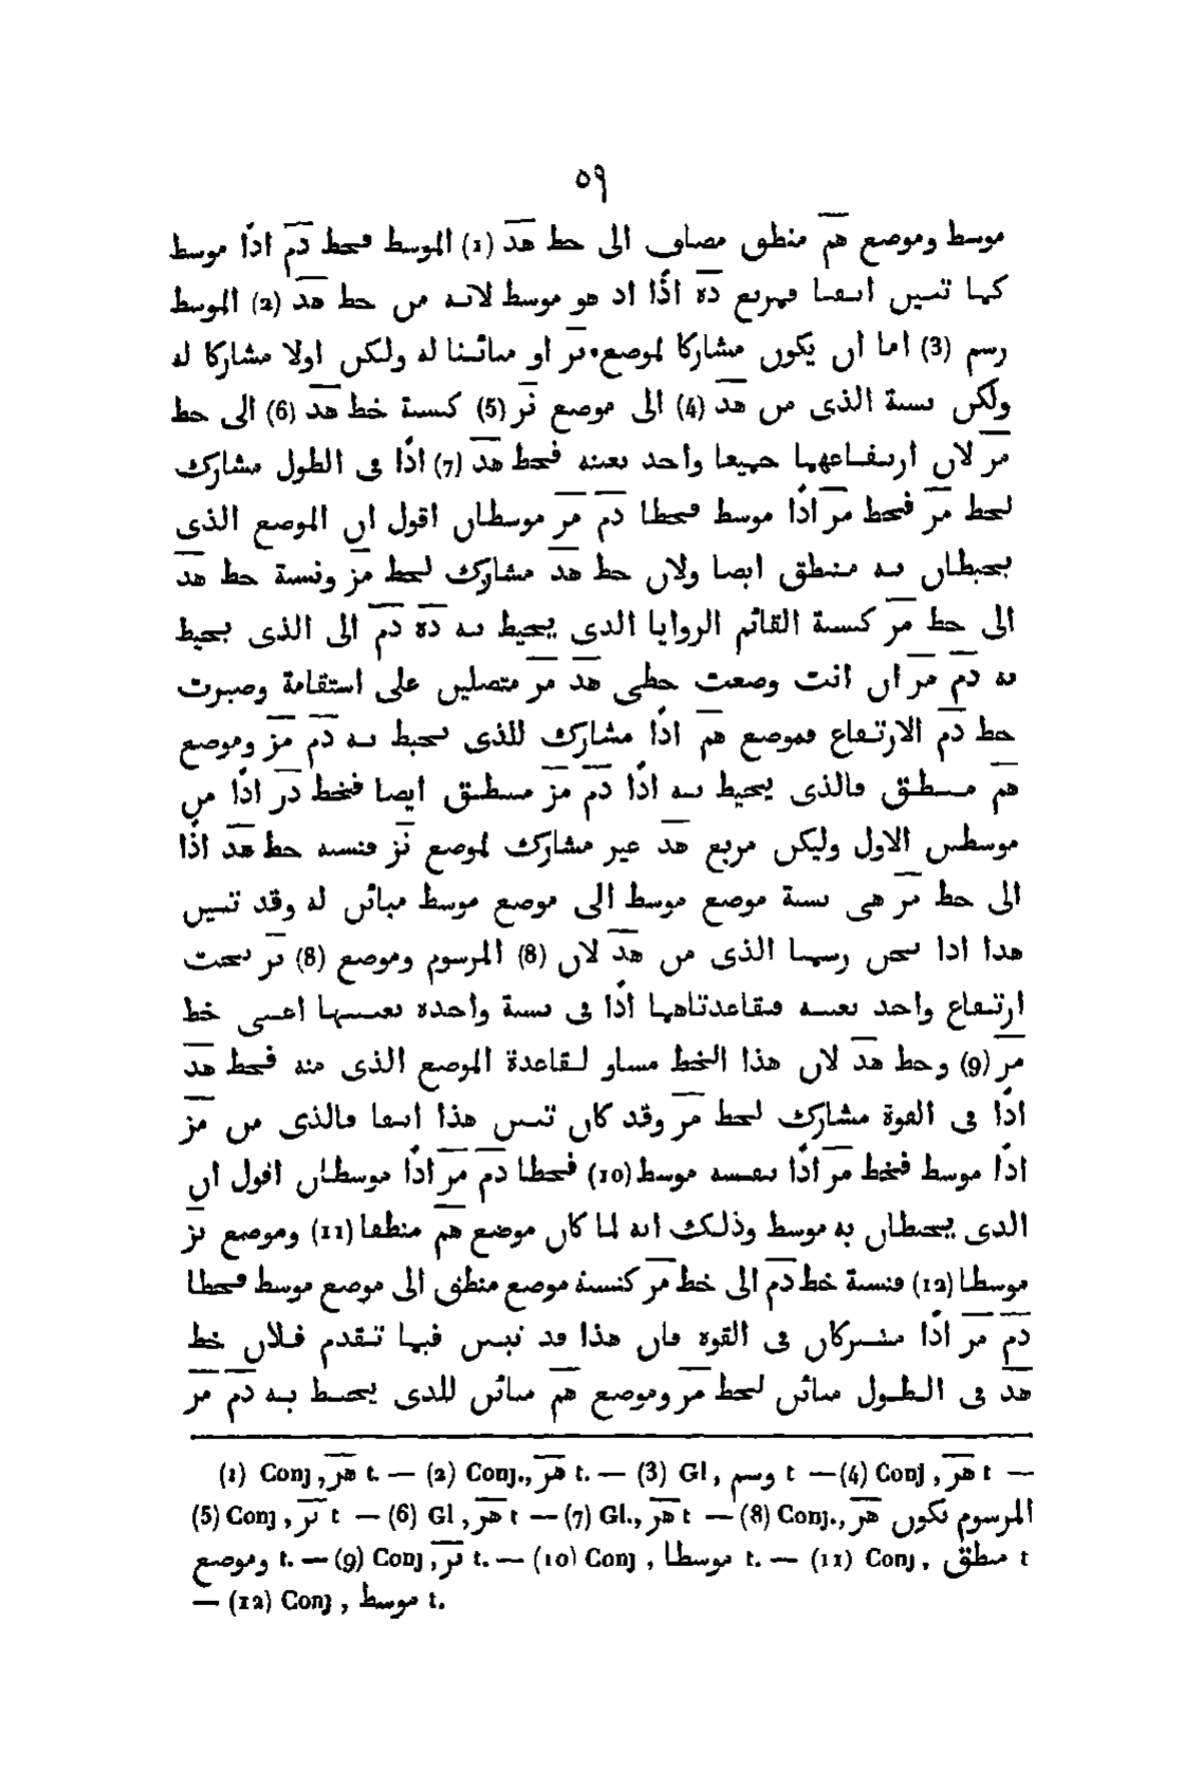 ٥٩
موسط وموضع هم منطق مضاف الى خط هد (1) الموسط فخط دم اذًا موسط
كما تبين ايضا فمربع ده اذًا اذ هو موسط لانه من خط هد (2) الموسط
رسم (3) اما ان يكون مشاركا لموضع نز او مبائنا له ولكن اولا مشاركا له
ولكن نسبة الذى من هد (4) الى موضع نز (5) كنسبة خط هد (6) الى خط
مز لان ارتفاعهما جميعا واحد بعينه فخط هد (7) اذًا فى الطول مشارك
لخط مز فخط مز اذًا موسط فخطا دم مز موسطان اقول ان الموضع الذى
يحيطان به منطق ايضا ولان خط هد مشارك لخط مز ونسبة خط هد
الى خط مز كنسبة القائم الزوايا الذى يحيط به ده دم الى الذى يحيط
به دم مز ان انت وضعت خطى هد مز متصلين على استقامة وصيرت
خط دم الارتفاع فموضع هم اذًا مشارك للذى يحيط به دم مز وموضع
هم منطق فالذى يحيط به اذًا دم مز منطق ايضا فخط دز اذًا من
موسطين الاول وليكن مربع هد غير مشارك لموضع نز فنسبه خط هد اذًا
الى خط مز هى نسبة موضع موسط الى موضع موسط مبائن له وقد تبين
هذا اذا نحن رسمنا الذى من هد لان (8) المرسوم وموضع (8) نز تحت
ارتفاع واحد بعينه فقاعدتاهما اذًا فى نسبة واحده بعينها اعنى خط
مز (9) وخط هد لان هذا الخط مساو لقاعدة الموضع الذى منه فخط هد
اذًا فى القوة مشارك لخط مز وقد كان تبين هذا ايضا فالذى من مز
اذًا موسط فخط مز اذًا بنفسه موسط (10) فخطا دم مز اذًا موسطان اقول ان
الذى يحيطان به موسط وذلك انه لما كان موضع هم منطقا (11) وموضع نز
موسطا (12) فنسبة خط دم الى خط مز كنسبة موضع منطق الى موضع موسط فخطا
دم مز اذًا مشتركان فى القوة فان هذا قد تبين فيما تقدم فلان خط
هد فى الطول مبائن لخط مز وموضع هم مبائن للذى يحيط به دم مز
(1) Conj, هز t. — (2) Conj., هز t. — (3) Gl, وسم t — (4) Conj, هز t —
(5) Conj, نز t — (6) Gl, هز t — (7) Gl., هز t — (8) Conj., المرسوم تكون هز
وموضع t. — (9) Conj, نز t. — (10) Conj, موسطا t. — (11) Conj, منطق t
— (12) Conj, موسط t.